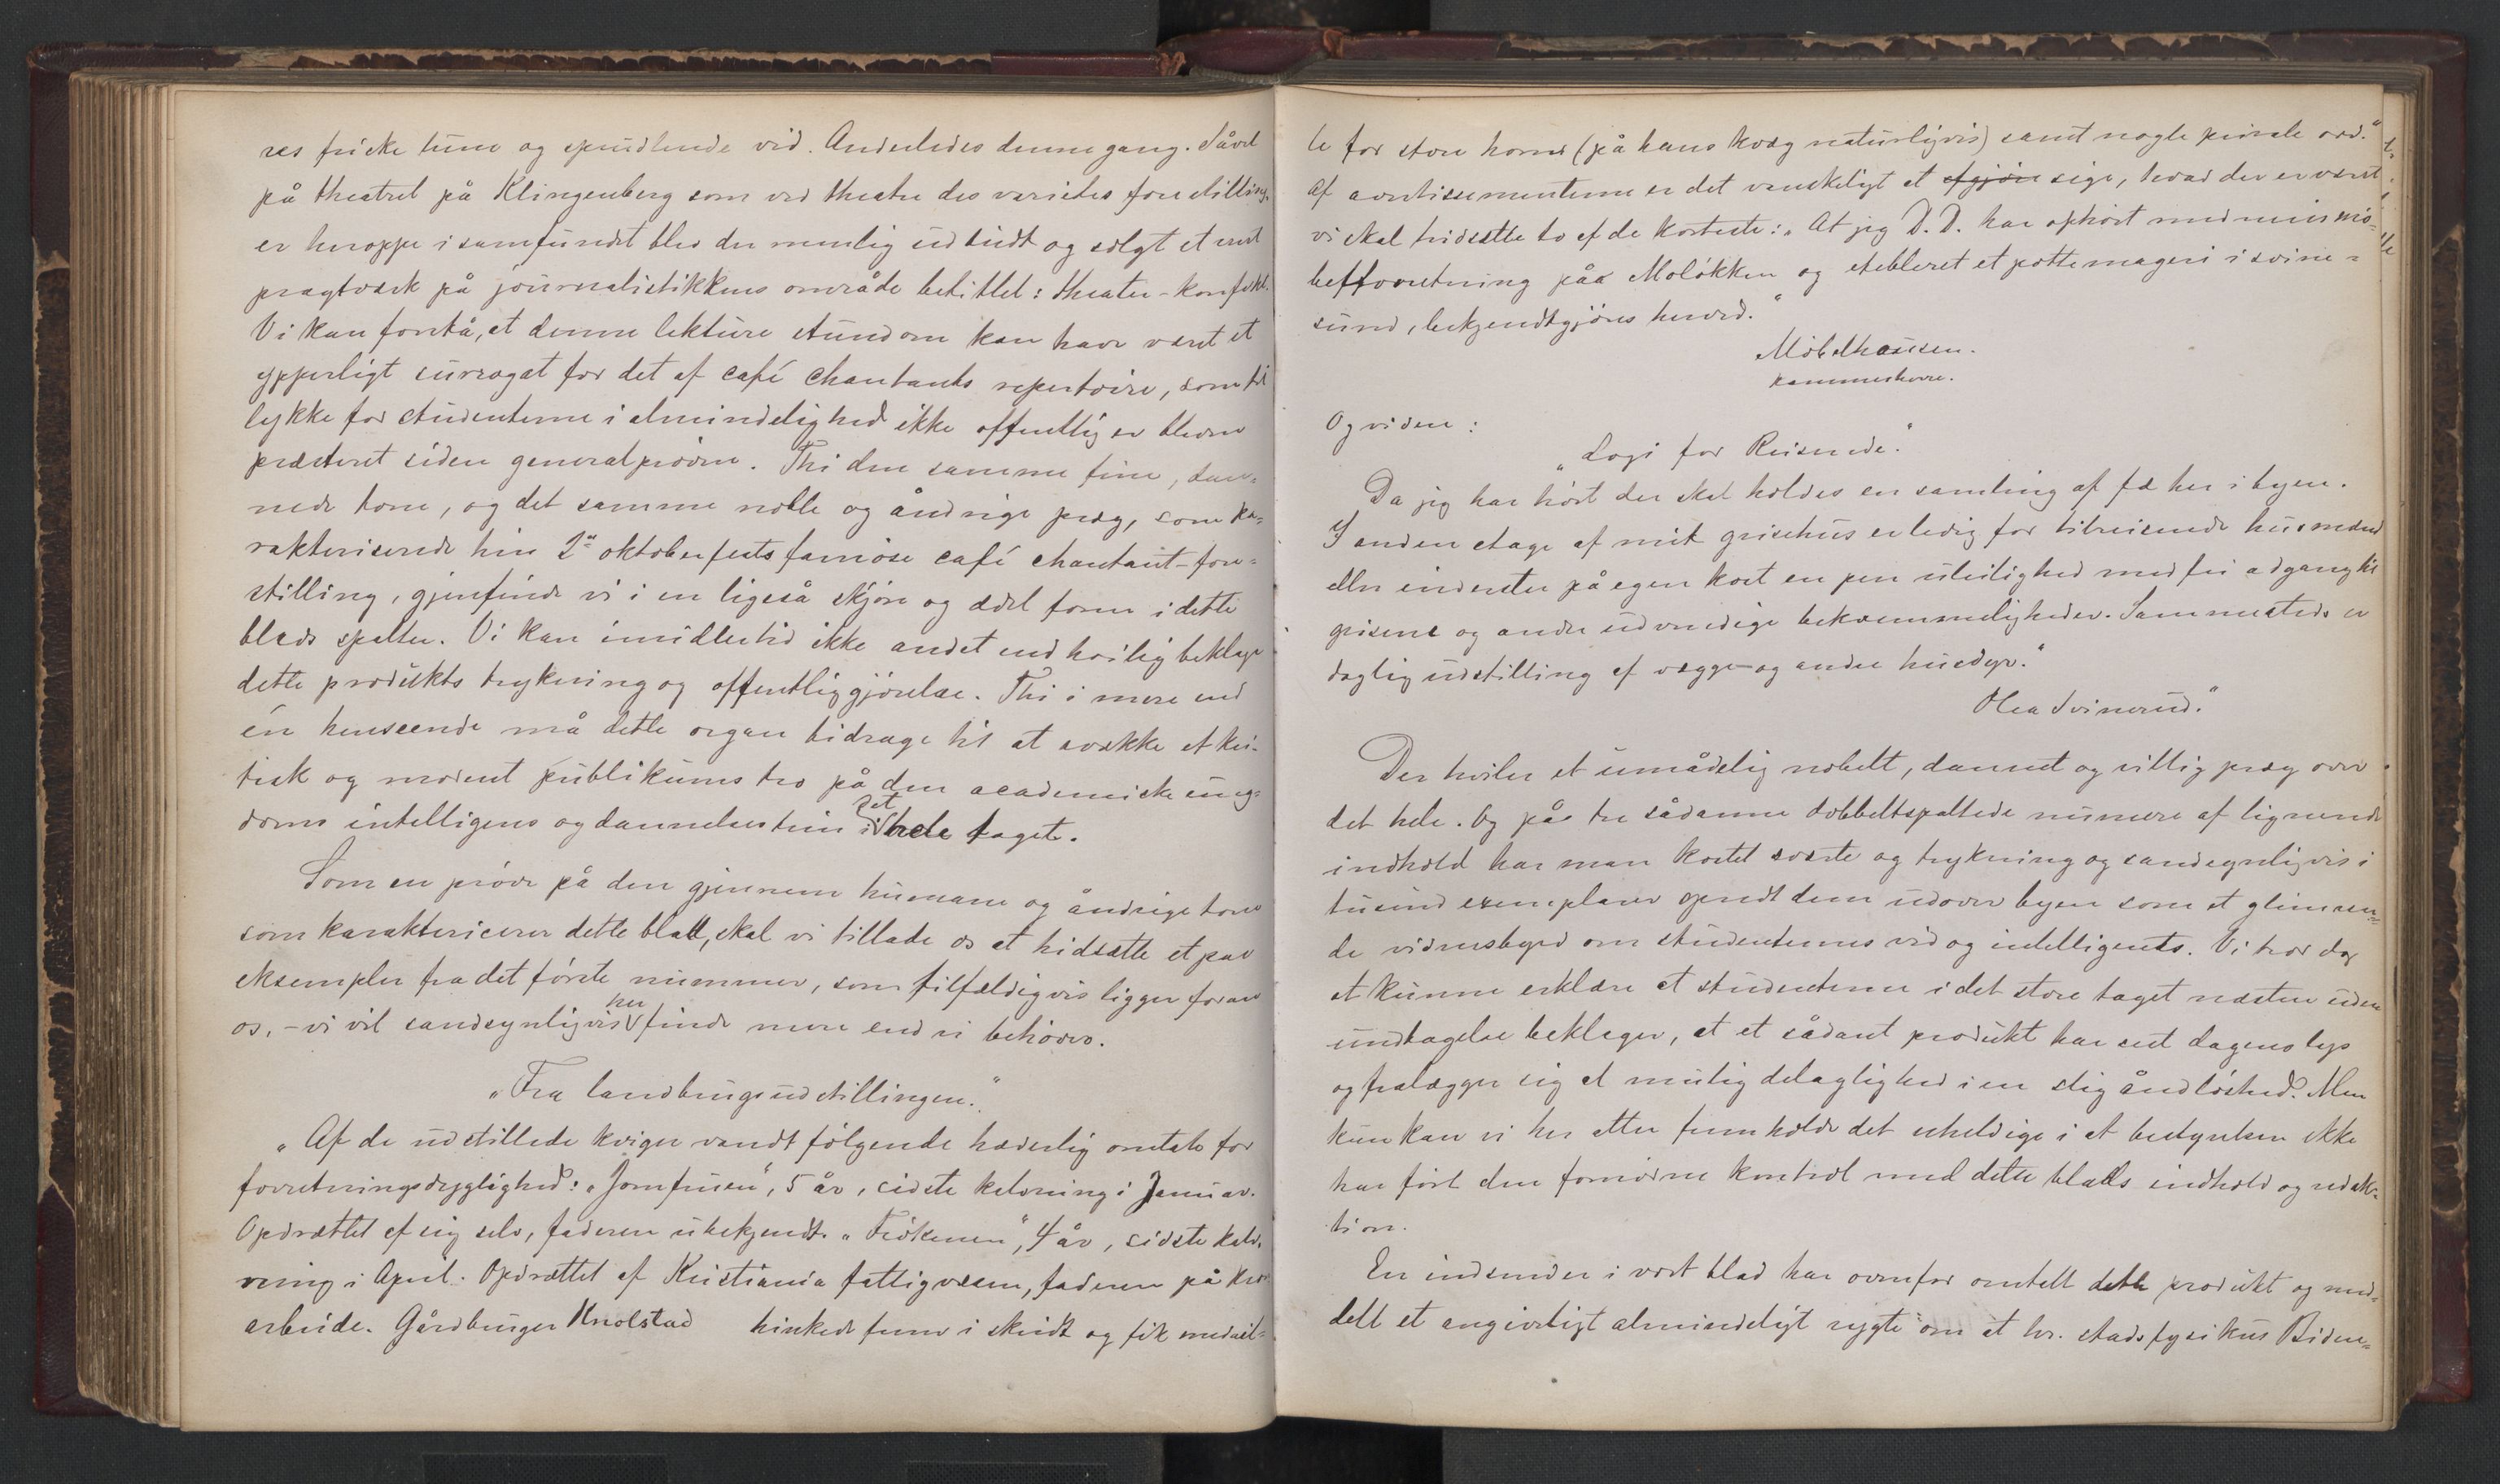 res friske lune og sprudlende vid. Anderledes denne gang. Såvel
på theatret på Klingenberg som ved theatre des varietes forestilling-
er heroppe i samfundet blev der nemlig udbudt og solgt et
pragtværk på journalistikkens område betitlet: theater-konfekt.
Vi kan forstå, at denne lekture stundom kan have været et
ypperligt surrogat for det af café chantants repertoire, som til
lykke for studenterne i almindelighed ikke offentlig er bleven
præsteret siden generalprøven. Thi den samme fine, dan-
nede tone, og det samme noble og åndrige præg, som ka-
rakteriserede hin 2den oktoberfests famøse café chantant-fore-
stilling, gjenfinde vi i en ligeså skjøn og ædel form i dette
blads spalter. Vi kan imidlertid ikke andet end høilig beklage
dette produkts trykning og offentliggjørelse. Thi i mere end
én henseende må dette organ bidrage til at svække et kri-
tisk og modent publikums tro på den academiske ung-
doms intelligens og dannelsestrin i det hele taget.
Som en prøve på den gjennem humane og åndrige tone
som karakteriserer dette blad, skal vi tillade os at hidsætte et par
eksempler fra det første nummer, som tilfældigvis ligger foran
os, - vi vil sandsynligvis her finde mere end vi behøver.
"Fra landbrugsudstillingen."
"Af de udstillede kviger vandt følgende hæderlig omtale for
forretningsdygtighed: "Jomfruen", 5 år, sidste kalvning i Januar.
Opdrættet af sig selv, faderen ubekjendt. "Frøkenen", 4 år, sidste kalv-
ning i April. Opdrættet af Kristiania fattigvæsen, faderen på
arbeide. Gårdbruger Knolstad hinkede frem i skridt og fik medail-
le for store horns (på hans kvæg naturligvis) samt nogle private ord."
Af avertissementerne er det vanskeligt at afgjøre sige, hvad der er værst.
vi skal hidsætte to af de korteste: "At jeg D. D. har ophørt med min mø-
belforretning på Moløkken og etableret et pottemageri i svine-
sund, bekjendtgjøres herved."
Møbelhausen.
kammerherre.
Og videre:
"Logi for Reisende."
Da jeg har hørt der skal holdes en samling af fæ her i byen.
I anden etage af mit grisehus er ledig for tilreisende husmænd
eller inderster på egen kost en pen leilighed med fri adgang til
grisene og andre udvendige bekvemmeligheder. Sammesteds er
daglig udstilling af vægge- og andre husdyr."
Olea Svinerud."
Der hviler et umådelig nobelt, dannet og vittig præg over
det hele. Og på tre sådanne dobbeltspaltede numere af lignende
indhold har man kostet sværte og trykning og sandsynligvis i
tusind exemplarer spredt dem udover byen som et glimren-
de vidnesbyrd om studenternes vid og intelligents. Vi tror dog
at kunne erklære at studenterne i det store taget næsten uden
undtagelse beklager, at et sådant produkt har set dagens lys
og fralægger sig al mulig delagtighed i en slig åndløshed. Men
kun kan vi her atter fremholde det uheldige i at bestyrelsen ikke
har ført den fornødne kontrol med dette blads indhold og redak-
tion.
En indsender i vort blad har ovenfor omtalt dette produkt og med-
delt et angiveligt almindeligt rygte om at hr. stadsfysikus Biden-